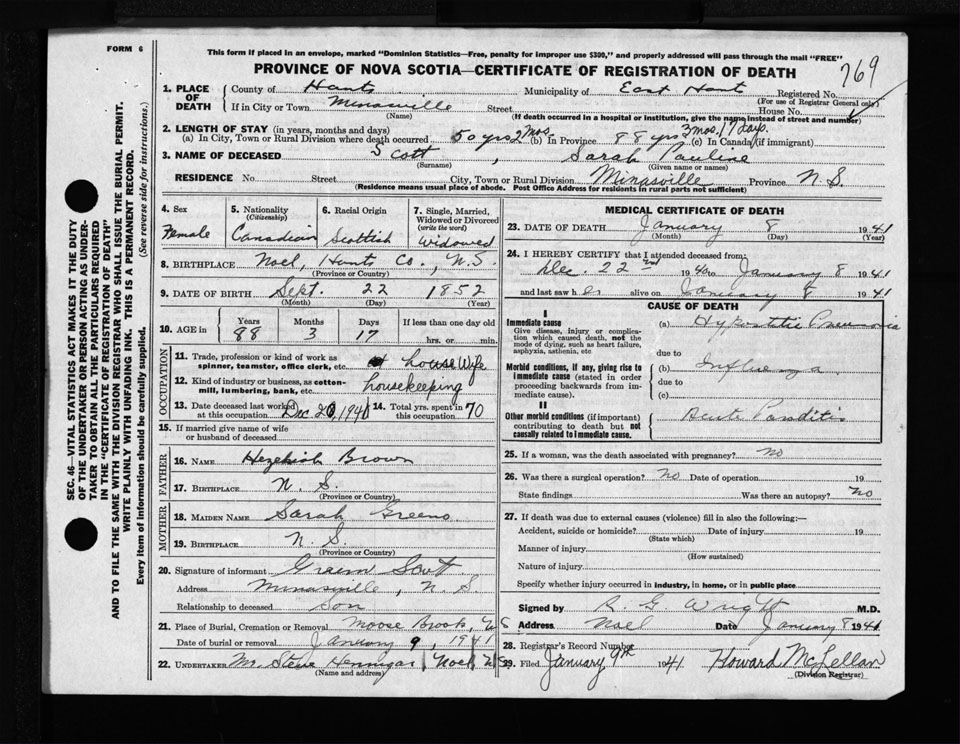 FORM 6
This form if placed in an envelope, marked "Dominion Statistics—Free, penalty for improper use $300," and properly addressed will pass through the mail "FREE"
PROVINCE OF NOVA SCOTIA—CERTIFICATE OF REGISTRATION OF DEATH
769
1. PLACE OF DEATH
County of Hants Municipality of East Hants Registered No.
(For use of Registrar General only)
If in City or Town Minasville Street House No.
(Name) (If death occurred in a hospital or institution, give the name instead of street and number)
2. LENGTH OF STAY (in years, months and days)
(a) In City, Town or Rural Division where death occurred 50 yrs 2 mos (b) In Province 88 yrs 3 mos. 17 days. (c) In Canada (if immigrant)
3. NAME OF DECEASED Scott, Sarah Pauline
(Surname) (Given name or names)
RESIDENCE No. Street City, Town or Rural Division Minasville Province N.S.
(Residence means usual place of abode. Post Office Address for residents in rural parts not sufficient)
SEC. 46—VITAL STATISTICS ACT MAKES IT THE DUTY
OF THE UNDERTAKER OR PERSON ACTING AS UNDER-
TAKER TO OBTAIN ALL THE PARTICULARS REQUIRED
IN THE "CERTIFICATE OF REGISTRATION OF DEATH"
AND TO FILE THE SAME WITH THE DIVISION REGISTRAR WHO SHALL ISSUE THE BURIAL PERMIT.
WRITE PLAINLY WITH UNFADING INK. THIS IS A PERMANENT RECORD.
Every item of information should be carefully supplied. (See reverse side for instructions.)
4. Sex 5. Nationality (Citizenship) 6. Racial Origin 7. Single, Married, Widowed or Divorced (write the word)
Female Canadian Scottish Widowed
8. BIRTHPLACE Noel, Hants Co., N.S.
(Province or Country)
9. DATE OF BIRTH Sept. 22 1852
(Month) (Day) (Year)
10. AGE in Years Months Days If less than one day old
88 3 17 hrs. or min.
OCCUPATION
11. Trade, profession or kind of work as spinner, teamster, office clerk, etc. housewife
12. Kind of industry or business, as cotton-mill, lumbering, bank, etc. housekeeping
13. Date deceased last worked at this occupation Dec 20 1940 14. Total yrs. spent in this occupation 70
15. If married give name of wife or husband of deceased
FATHER
16. NAME Hezekiah Brown
17. BIRTHPLACE N. S.
(Province or Country)
MOTHER
18. MAIDEN NAME Sarah Greeno
19. BIRTHPLACE N. S.
(Province or Country)
20. Signature of informant Scott
Address Minasville, N. S.
Relationship to deceased Son
21. Place of Burial, Cremation or Removal Moose Brook, N S
Date of burial or removal January 9, 1941
22. UNDERTAKER Mr. Steve Hennigar Noel N S
(Name and address)
MEDICAL CERTIFICATE OF DEATH
23. DATE OF DEATH January 8 1941
(Month) (Day) (Year)
24. I HEREBY CERTIFY that I attended deceased from:
Dec. 22nd 1940 to January 8 1941
and last saw her alive on January 8 1941
CAUSE OF DEATH
I
Immediate cause
Give disease, injury or complication which caused death, not the mode of dying, such as heart failure, asphyxia, asthenia, etc
(a) Hypostatic Pneumonia
due to
Morbid conditions, if any, giving rise to immediate cause (stated in order proceeding backwards from immediate cause).
(b) Influenza
due to
(c)
II
Other morbid conditions (if important) contributing to death but not causally related to immediate cause.
Acute Parotitis
25. If a woman, was the death associated with pregnancy? no
26. Was there a surgical operation? No Date of operation 19
State findings Was there an autopsy? No
27. If death was due to external causes (violence) fill in also the following:—
Accident, suicide or homicide? Date of injury 19
(State which)
Manner of injury
(How sustained)
Nature of injury
Specify whether injury occurred in industry, in home, or in public place
Signed by R G Wright M.D.
Address Noel Date January 8 1941
28. Registrar's Record Number
29. Filed January 9th 1941 Howard McLellan
(Division Registrar)